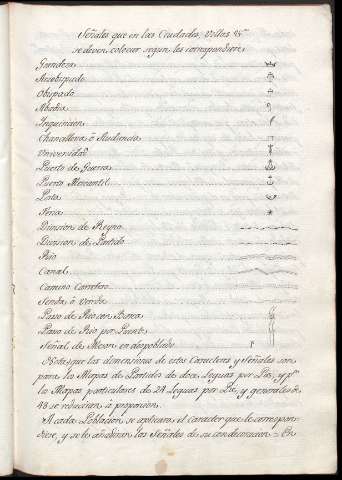 Señales que en las Ciudades, Villas &.
se deven colocar segun les correspondiere
Grandeza
Arzobispado
Obispado
Abadia
Inquisicion
Chancilleria ô Audiencia
Universidad
Puerto de Guerra
Puerto Mercantil
Posta
Feria
Division de Reyno
Division de Partido
Rio
Canal
Camino Carretero
Senda ô Vereda
Paso de Rio en Barca
Paso de Rio por Puente
Señal de Meson en despoblado
Nota, que las dimensiones de estos Caracteres y Señales son
para los Mapas de Partidos de doce Leguas por Pie, y p.ª
los Mapas particulares de 24 Leguas por Pie, y generales de
48 se reduciran â proporcion.
A cada Poblacion se aplicara el caracter que le correspon-
diese, y se le añadiran las Señales de su condecoracion = En